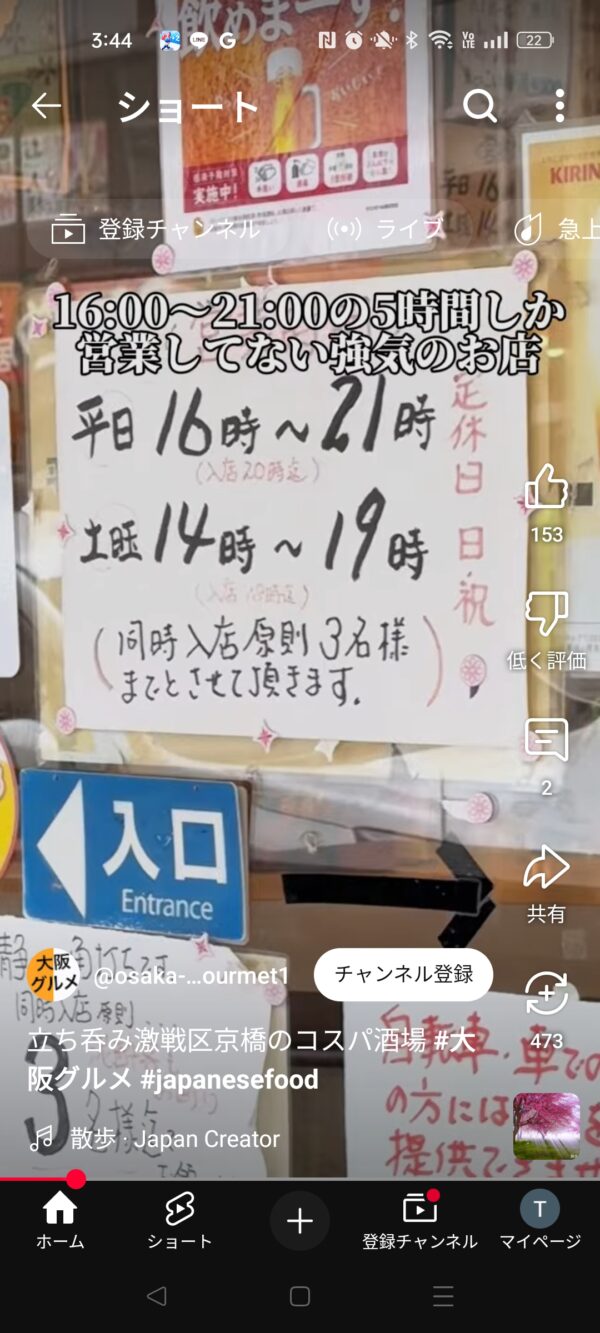 3:44
LINE
G
Vo LTE
22
飲めまーす!
ショート
実施中!
平日 16
KIRIN
登録チャンネル
ライブ
急上
16:00〜21:00の5時間しか
営業してない強気のお店
平日 16時〜21時
(入店20時迄)
土曜 14時〜19時
(入店18時迄)
(同時入店原則3名様
までとさせて頂きます。)
定休日 日・祝
153
低く評価
2
共有
473
入口
Entrance
同時入店原則
3名様迄
自転車・車での
の方には
提供できませ
大阪
グルメ
@osaka-...ourmet1
チャンネル登録
立ち呑み激戦区京橋のコスパ酒場 #大
阪グルメ #japanesefood
散歩 · Japan Creator
ホーム
ショート
登録チャンネル
T
マイページ